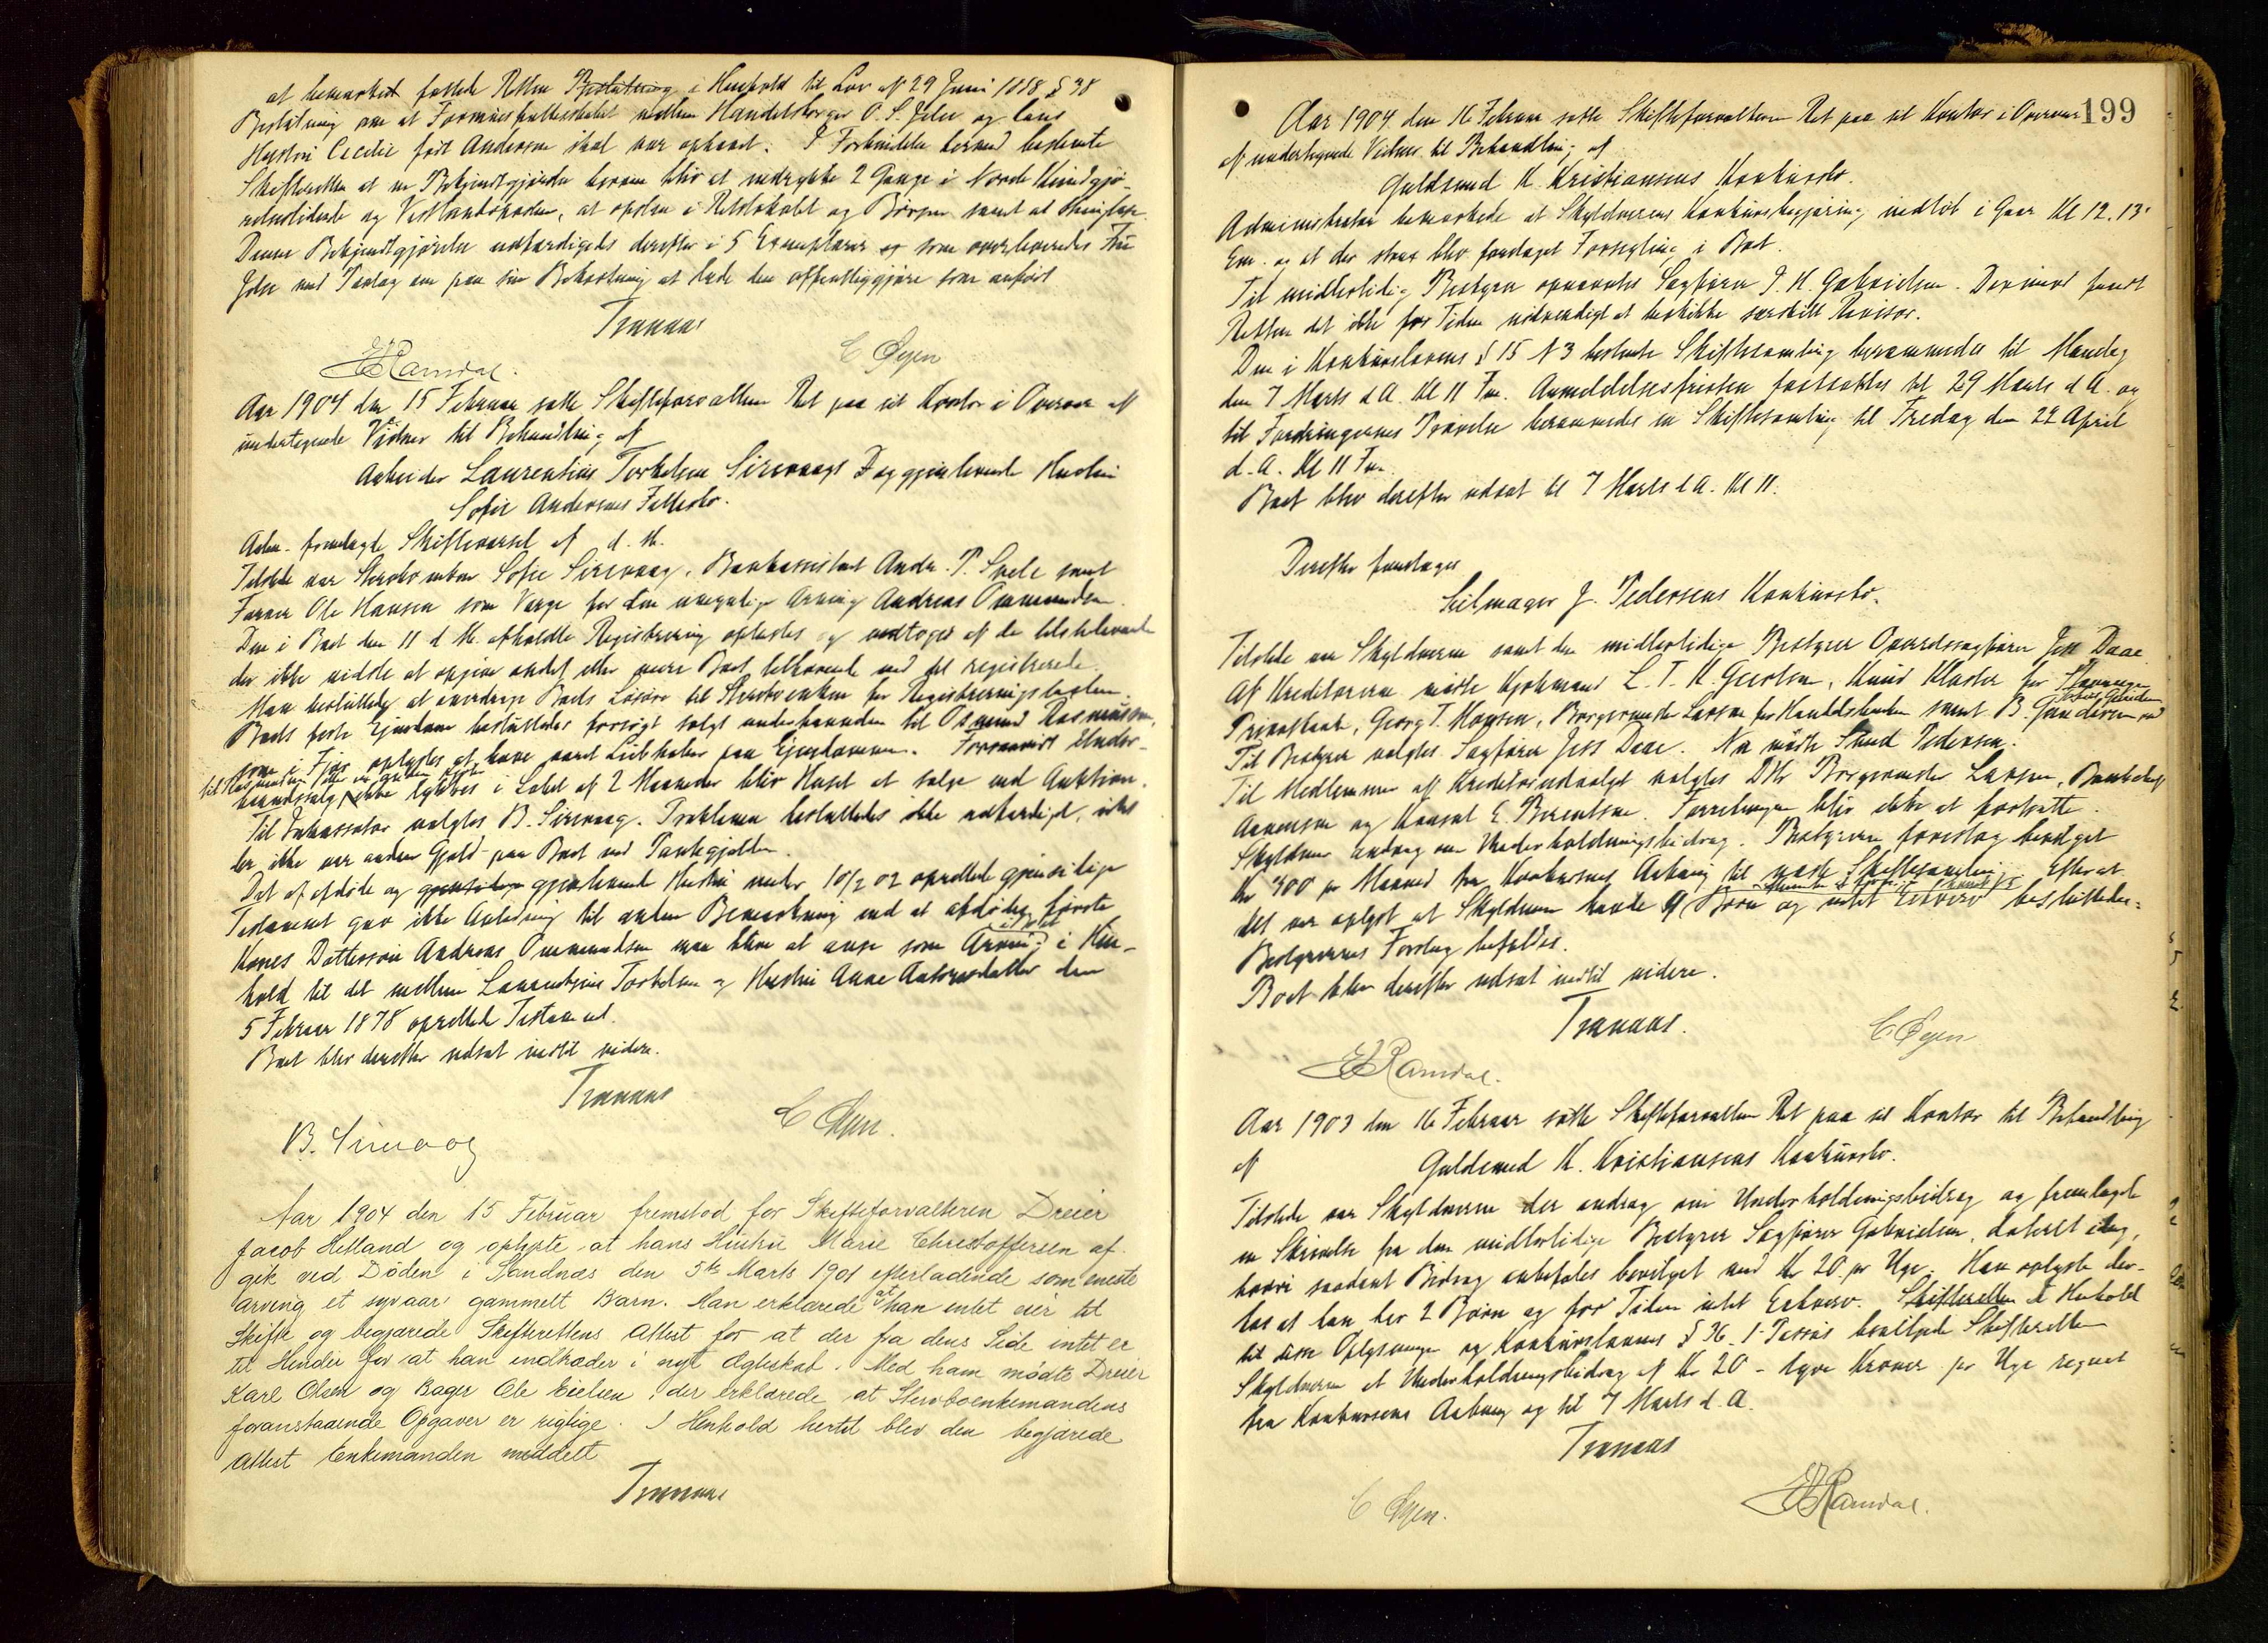 at bemærket fattede Retten Beslutning i Henhold til Lov af 29 Juni 1888 § 48
Beslutning om at Formuesfællesskabet mellem Handelsborger O. S. Jelsa og hans
Hustru Cecilie født Andersen skal være ophævet. I Forbindelse hermed bestemte
Skifteretten at en Bekjendtgjørelse herom bliver at indrykke 2 Gange i Norsk Kundgjø-
relsestidende og Vestlandsposten, at opslaa i Retslokalet og Børsen samt at thinglæse.
Denne Bekjendtgjørelse udfærdigedes derefter i 5 Exemplarer som overleveredes Fru
Jelsa med Paalæg om paa sin Bekostning at lade den offentliggjøre som anført
Tranaas
E Ramdal. C Øyen
Aar 1904 den 15 Februar satte Skifteforvalteren Ret paa sit Kontor i Overvær af
undertegnede Vidner til Behandling af
Arbeider Laurentius Torkelsen Sirevaags D og gjenlevende Hustru
Sofie Andersens Fællesbo.
Adm. fremlagde Skiftevarsel af d. M.
Tilstede var Sterboenken Sofie Sirevaag, Bankassistent Andr. P. Svele samt
Farver Ole Hansen som Værge for den umyndige Arving Andreas Ommundsen.
Den i Boet den 11 d M. afholdte Registrering oplæstes og vedtoges af de tilstedeværende
der ikke vidste at opgive andet eller mere Boet tilhørende end det registrerede.
Man besluttede at overdrage Boets Løsøre til Sterboenken for Registreringstaksten.
Boets faste Eiendom besluttedes forsøgt solgt underhaanden til Osmund Rasmussen,
som i Fjor oplystes at have været Liebhaber paa Eiendommen. Forsaavidt Under-
til Rasmussen eller en anden
haandssalg ikke lykkes i Løbet af 2 Maaneder bliver Huset at sælge ved Auktion.
Til Inkassator valgtes B. Sirevaag. Proklama besluttedes ikke udfærdiget, idet
der ikke var anden Gjæld paa Boet end Pantegjælden.
Det af afdøde og gjensidige gjenlevende Hustru under 10/2 02 oprettede gjensidige
Testament gav ikke Anledning til anden Bemærkning end at afdødes første
Kones Dattersøn Andreas Ommundsen maa blive at anse som Arving i Hen-
hold til det mellem Laurentsius Torkelsen og Hustru Anne Andersdatter den
5 Februar 1878 oprettede Testament.
Boet blev derefter udsat indtil videre.
Tranaas
B. Sirevaag C Øyen.
Aar 1904 den 15 Februar fremstod for Skifteforvalteren Dreier
Jacob Hetland og oplyste at hans Hustru Marie Christoffersen af-
gik ved Døden i Sandnæs den 5te Marts 1901 efterladende som eneste
arving et syvaar gammelt Barn. Han erklærede at han intet eier til
Skifte og begjærede Skifterettens Attest for at der fra dens Side intet er
til Hinder for at han indtræder i nyt Ægteskab. Med ham mødte Dreier
Karl Olsen og Bager Ole Eielsen der erklærede at Sterboenkemandens
foranstaaende Opgaver er rigtige. I Henhold hertil blev den begjærede
attest Enkemanden meddelt
Tranaas
199
Aar 1904 den 16 Februar satte Skifteforvalteren Ret paa sit Kontor i Overvær
af undertegnede Vidner til Behandling af
Guldsmed K. Kristiansens Konkursbo.
Administrator bemærkede at Skyldnerens Konkursbegjæring indløb i Gaar Kl 12.15
Em. og at der strax blev foretaget Forsegling i Boet.
Til midlertidig Bestyrer opnævntes Sagfører J. K. Gabrielsen. Derimod fandt
Retten det ikke for Tiden nødvendigt at beskikke særskilt Revisor.
Den i Konkurslovens § 15 N 3 bestemte Skiftesamling berammedes til Mandag
den 7 Marts d A. Kl 11 Fm. Anmeldelsesfristen fastsattes til 29 Marts d A. og
til Fordringernes Prøvelse berammedes en Skiftesamling til Fredag den 22 April
d. A. Kl 11 Fm.
Boet blev derefter udsat til 7 Marts d A. Kl 11.
Derefter foretoges
Seilmager J. Pedersens Konkursbo.
Tilstede var Skyldneren samt den midlertidige Bestyrer Overretssagfører Jess Daae.
Af Kreditorerne mødte Kjøbmand L. T. K. Geertsen, Knud Kloster for Stavanger
Privatbank, Georg T. Monsen, Borgermester Larsen for Handelsbanken samt B. Gundersen ved
Til Bestyrer valgtes Sagfører Jess Daae. Nu mødte Svend Pedersen.
Til Medlemmer af Kreditorudvalget valgtes DHr Borgermester Larsen, Bankchef
Aanensen og Konsul E. Berentsen. Forretningen blir ikke at fortsætte.
Skyldneren androg om Underholdningsbidrag. Bestyreren foreslog bevilget
Kr 400 pr Maaned fra Konkursens Aabning til næste Skiftesamling. Efterat
det var oplyst at Skyldneren havde 9 Børn og intet Erhverv besluttedes
Bestyrerens Forslag befulgt.
Boet blev derefter udsat indtil videre.
Tranaas.
E Ramdal. C Øyen
Aar 1903 den 16 Februar satte Skifteforvalteren Ret paa sit Kontor til Behandling
af Guldsmed K. Kristiansens Konkursbo.
Tilstede var Skyldneren der androg om Underholdningsbidrag og fremlagde
en Skrivelse fra den midlertidige Bestyrer Sagfører Gabrielsen, dateret idag,
hvori saadant Bidrag anbefales bevilget med Kr 20 pr Uge. Han oplyste der-
hos at han har 2 Børn og for Tiden intet Erhverv. Skifteretten I Henhold
til disse Oplysninger og Konkurslovens § 36 1. Passus bevilgede Skifteretten
Skyldneren et Underholdningsbidrag af Kr 20 - tyve Kroner pr Uge regnet
fra Konkursens Aabning og til 7 Marts d. A.
Tranaas
C Øyen. E Ramdal.